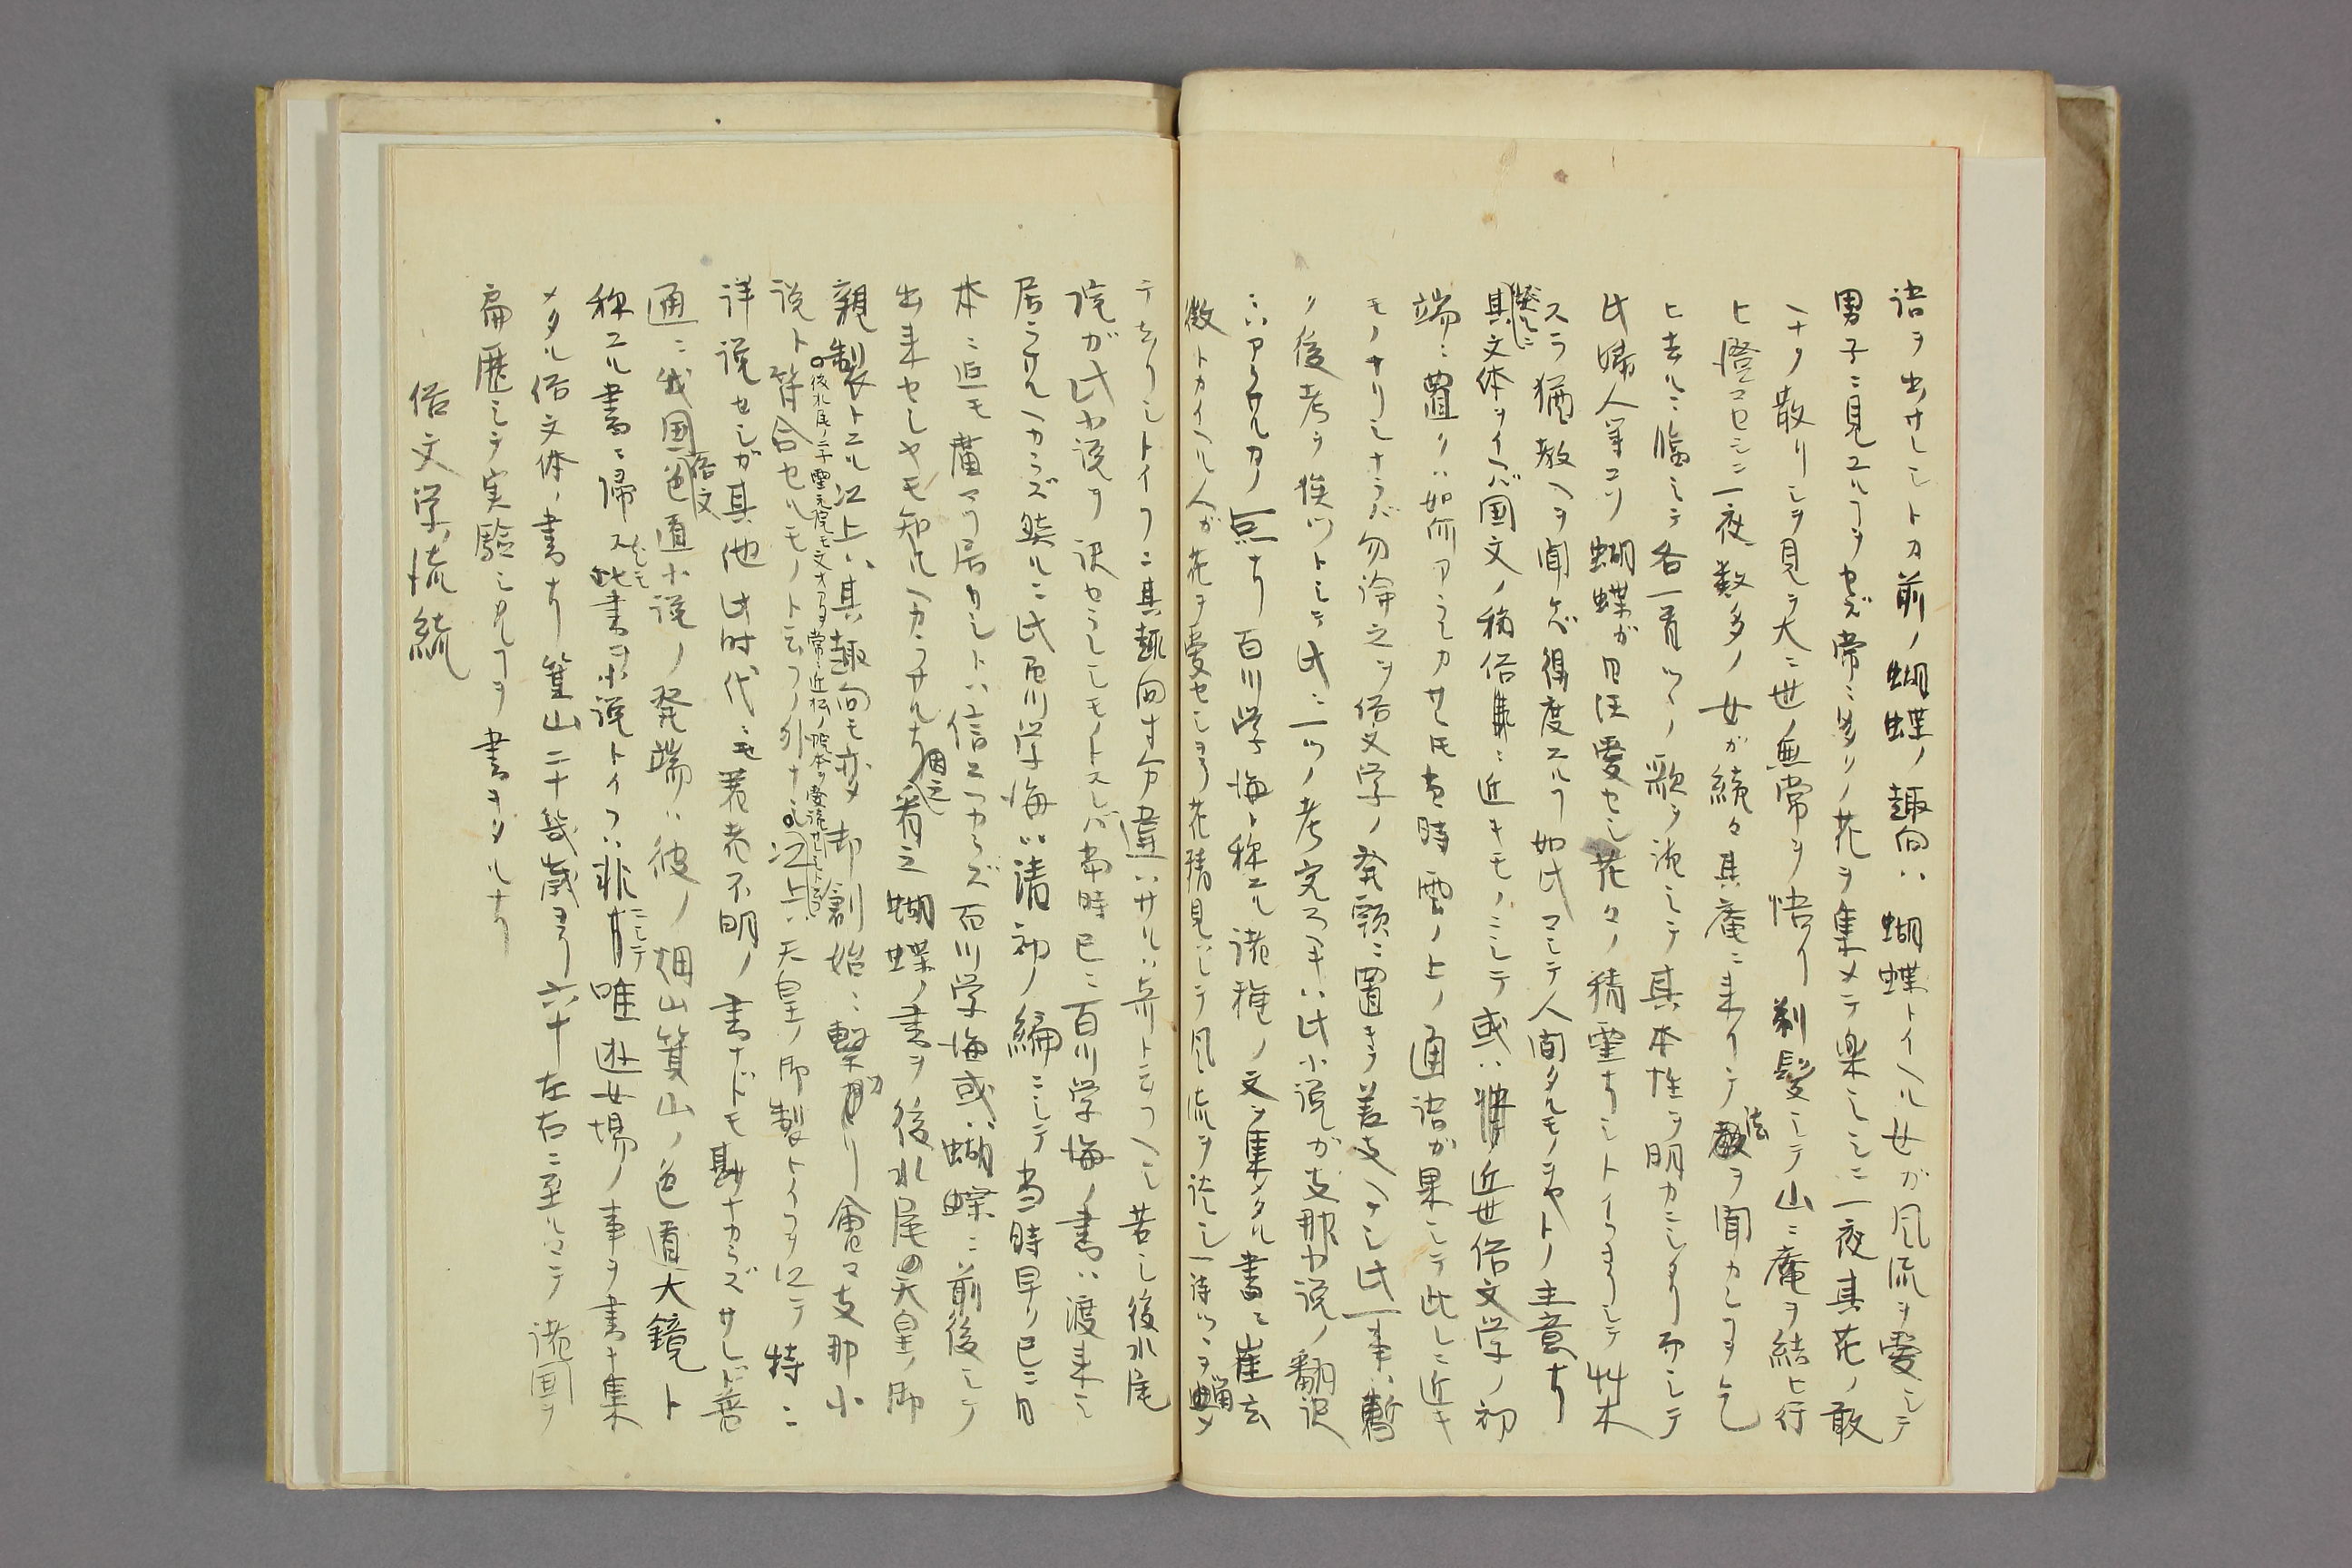 語ヲ出サレシトカ前ノ蝴蝶ノ趣向ハ蝴蝶トイヘル女ガ風流ヲ愛シテ
男子ニ見ユル ヲセズ常ニ多リノ花ヲ集メテ楽シミシニ一夜其花ノ敢
ヘナク散リシヲ見テ大ニ世ノ無常ヲ悟リ剃髪シテ山ニ庵ヲ結ヒ行
ヒ澄マセシニ一夜数多ノ女ガ続々其庵ニ来リテ法ヲ聞カン ヲ乞
ヒ去ルニ臨ミテ各一首ツヽノ歌ヲ詠ミテ其本性ヲ明カニシタリ而シテ
此婦人等コソ蝴蝶ガ日頃愛セシ花々ノ精霊ナリシトイフ シテ艸木
スラ猶教ヘヲ聞ケバ得度スル 如此マシテ人間タルモノヲヤトノ主意ナリ
然ルニ其文体ヲイヘバ国文ノ稍俗 ニ近キモノニシテ或ハ 近世俗文学ノ初
端ニ置クハ如何アランカサレモ当時雲ノ上ノ通語ガ果シテ此レニ近キ
モノナリシナラバ勿論之ヲ俗文学ノ発頭ニ置キテ差支ヘナシ此一事ハ暫
ク後考ヲ俟ツトシテ此ニ一ツノ考究スヘキハ此小説ガ支那小説ノ翻訳
ニハアラヌカノ一点ナリ百川学海ト称スル諸種ノ文ヲ集メタル書ニ崔玄
微トカイヘル人ガ花ヲ愛セシヨリ花精見ハレテ風流ヲ談シ一詩ツヽヲ
テ去リシトイフニ其趣向寸分違ハサルハ奇ト云フヘシ若シ後水尾
院ガ此小説ヲ訳セラレシモノトスレバ当時已ニ百川学海ノ書ハ渡来シ
居ラザルヘカラズ然ルニ此百川学海ハ清初ノ編ニシテ当時早ク已ニ日
本ニ迄モ廣マリ居リシトハ信スヘカラズ百川学海或ハ蝴蝶ニ前後シテ
出来セシヤモ知ルヘカラサルナリ因之看之蝴蝶ノ書ヲ後水尾天皇ノ御
親製トスル以上ハ其趣向モ亦タ御創始ニ繋ガリ會マ支那小
後水尾ノ子霊元院モ文才アリ常ニ近松ノ院本ヲ愛読サレシト云フ
説ト符合セルモノト云フノ外ナシ以上ハ天皇ノ御製トイフヲ以テ特ニ
詳説セシガ其他此時代ニモ著者不明ノ書ナドモ尠ナカラズサレド普
通ニ我国俗文色道小説ノ発端ハ彼ノ畑山箕山ノ色道大鏡ト
称スル書ニ帰スレモ此書ヲ小説トイフハ非ニシテ唯遊女場ノ事ヲ書キ集
メタル俗文体ノ書ナリ箕山二十幾歳ヨリ六十左右ニ至ルマテ諸国ヲ
扁歴シテ実験シタル ヲ書キタルナリ
俗文学ノ流統